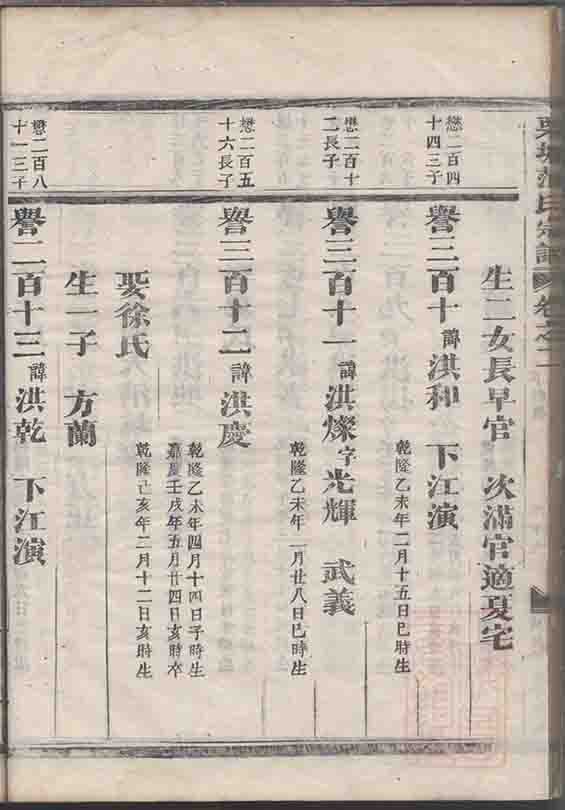 氏宗譜 卷之二
生二女長早官 次滿官適夏宅
懋二百四十四三子
譽三百十 諱洪和 下江演
乾隆乙未年二月十五日巳時生
懋二百十二長子
譽三百十一 諱洪燦字光輝 武義
乾隆乙未年 月廿八日巳時生
懋二百五十六長子
譽三百十二 諱洪慶
乾隆乙未年四月十四日子時生
嘉慶壬戌年五月廿四日亥時卒
娶徐氏
乾隆己亥年二月十二日亥時生
生一子 方蘭
懋二百八十一三子
譽三百十三 諱洪乾 下江演